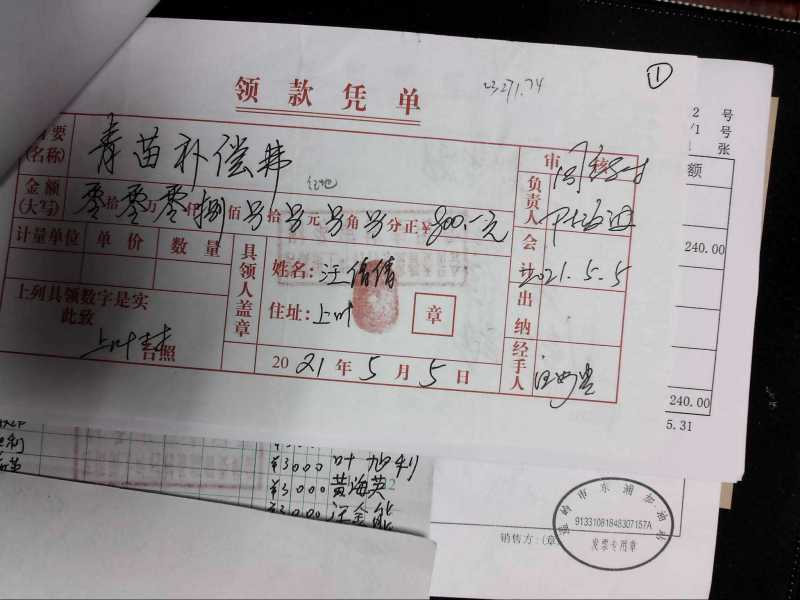 ①
23271.74
领款凭单
摘要
(名称)
青苗补偿费
金额
(大写)
零拾零万零仟捌佰另拾另元另角另分正¥800.-元
计量单位 单价 数量
上列具领数字是实
此致
上叶村
台照
具领人盖章
姓名:汪倩倩
住址:上叶
章
2021年5月5日
审核
负责人
会计
2021.5.5
出纳
经手人
2 号
/1 号
张
额
240.00
240.00
5.31
¥3000 叶旭利
¥3000 黄海英
¥3000 汪金能
销售方:(章)
温岭市东浦加油站
91331081848307157A
发票专用章